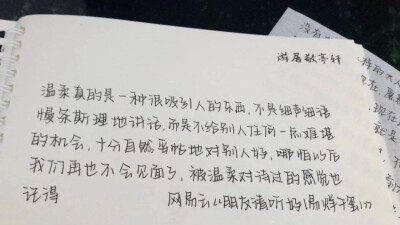 游居敬亭轩
温柔真的是一种很吸引人的东西，不是细声细语
慢条斯理地讲话，而是不给别人任何一点难堪
的机会，十分自然妥帖地对别人好，哪怕以后
我们再也不会见面了，被温柔对待过的感觉也
记得
网易云《朋友请听好（易烊千玺）》
没有